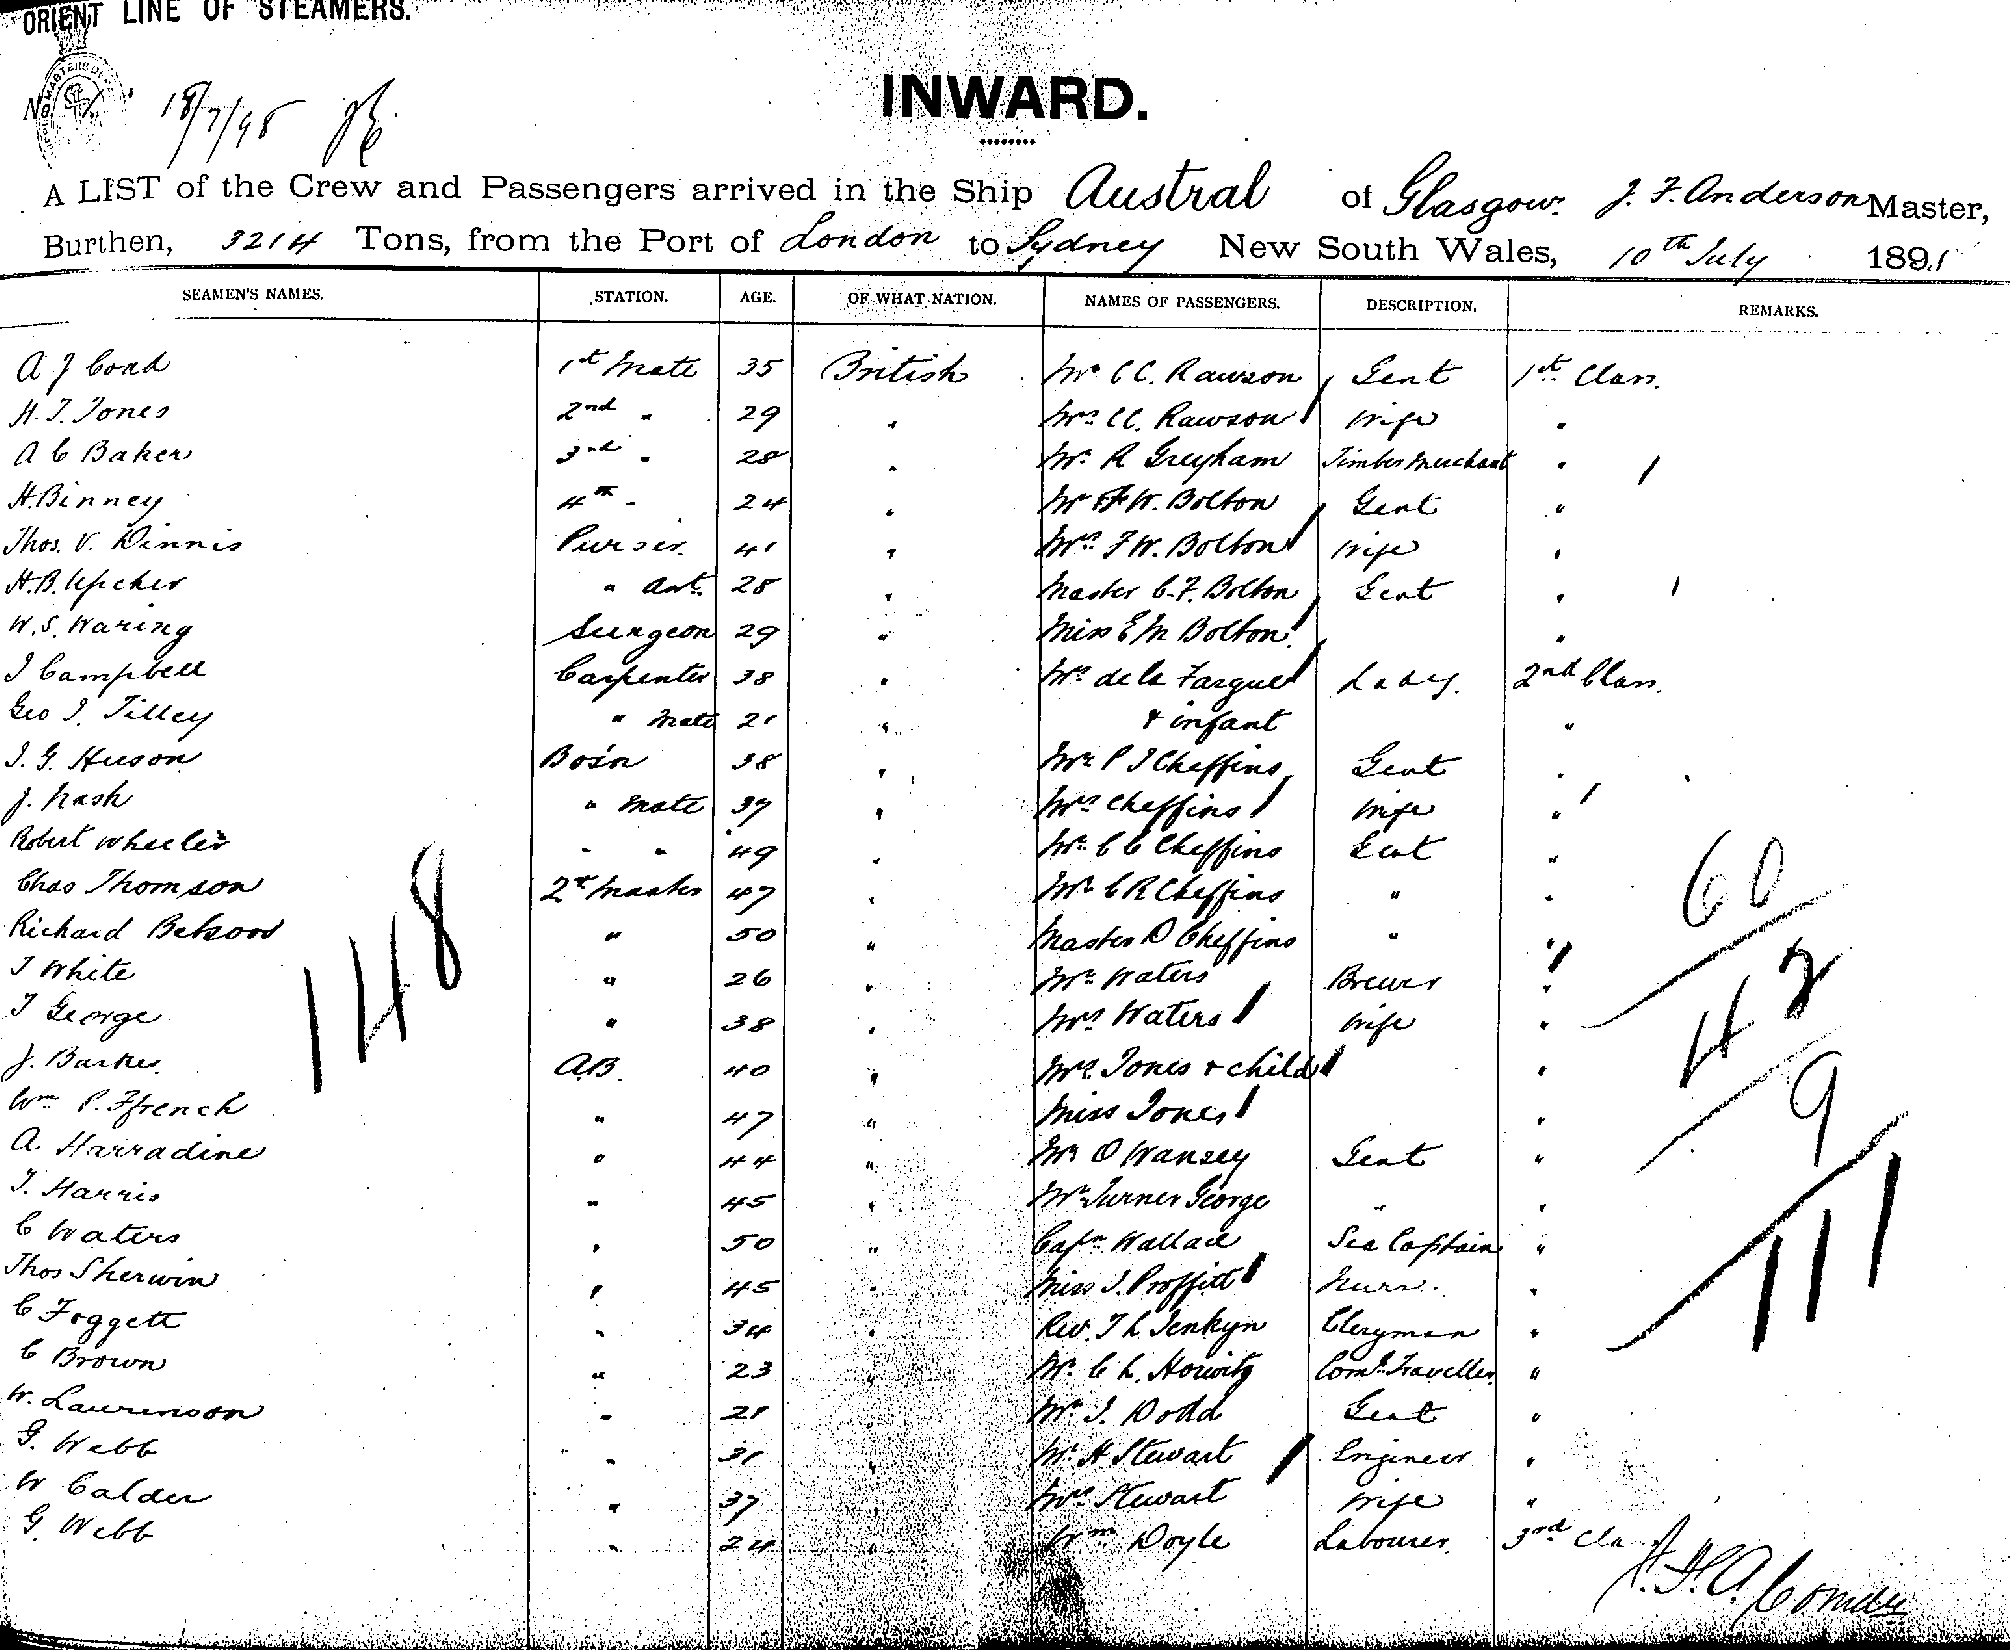 ORIENT LINE OF STEAMERS.
No 18/7/95
INWARD.
A LIST of the Crew and Passengers arrived in the Ship Austral of Glasgow. J. F. Anderson Master,
Burthen, 3214 Tons, from the Port of London to Sydney New South Wales, 10th July 189
SEAMEN'S NAMES. STATION. AGE. OF WHAT NATION. NAMES OF PASSENGERS. DESCRIPTION. REMARKS.
A J Coad 1st Mate 35 British Mr C C. Rawson Gent 1st Class.
H. T. Jones 2nd " 29 " Mrs C C. Rawson Wife "
A C Baker 3rd " 28 " Mr R Greyham Timber Merchant "
H. Binney 4th " 24 " Mr F W. Bolton Gent "
Thos. V. Dinnis Purser 41 " Mrs F W. Bolton Wife "
H. B. Upcher " Asst. 28 " Master C. F. Bolton Gent "
W. S. Waring Surgeon 29 " Miss E M Bolton "
J Campbell Carpenter 38 " Mrs de la Fargue Lady. 2nd Class.
Geo J. Tilley " Mate 21 " & infant "
J. G. Huson Bos'n 38 " Mr P J Cheffins Gent "
J. Nash " Mate 37 " Mrs Cheffins Wife "
Robert Wheeler " " 49 " Mr C C Cheffins Gent "
Chas Thomson 2r Master 47 " Mr C R Cheffins " "
Richard " 50 " Master D Cheffins " "
T White " 26 " Mr Waters Brewer "
T George " 38 " Mrs Waters Wife "
J. Barker A.B. 40 " Mrs Jones & child "
Wm P. Ffrench " 47 " Miss Jones "
A. Harradine " 44 " Mr O Wansey Gent "
T. Harris " 45 " Mr Turner George " "
C Waters " 50 " Captn Wallace Sea Captain "
Thos Sherwin " 45 " Miss J. Proffitt Nurse "
C Foggett " 34 " Rev. T L Jenkyn Clergyman "
C Brown " 23 " Mr C L. Horwitz Coml Traveller "
W. Laurenson " 28 " Mr J. Dodd Gent "
G. Webb " 31 " Mr H Stewart Engineer "
W Calder " 37 " Mrs Stewart Wife "
G. Webb " 24 " Wm Doyle Labourer. 3rd Cla
148
60
42
9
111